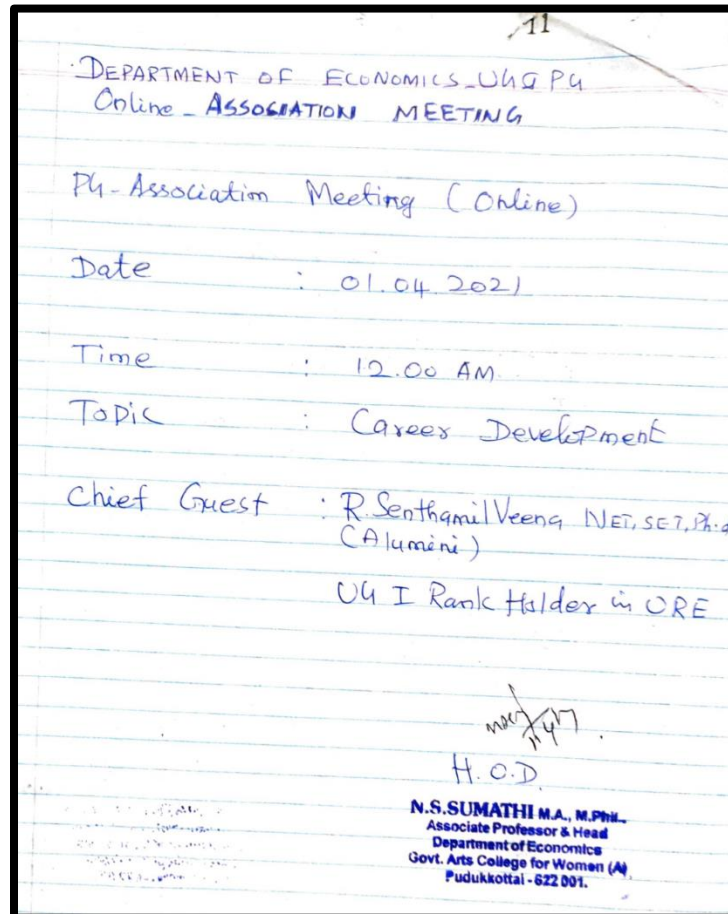 11
DEPARTMENT OF ECONOMICS_UG & PG
Online - ASSOCIATION MEETING
PG-Association Meeting (Online)
Date : 01.04.2021
Time : 12.00 AM
Topic : Career Development
Chief Guest : R. Senthamil Veena NET, SET, Ph.d
(Alumini)
UG I Rank Holder in URE
H.O.D.
N.S.SUMATHI M.A., M.Phil.,
Associate Professor & Head
Department of Economics
Govt. Arts College for Women (A)
Pudukkottai - 622 001.